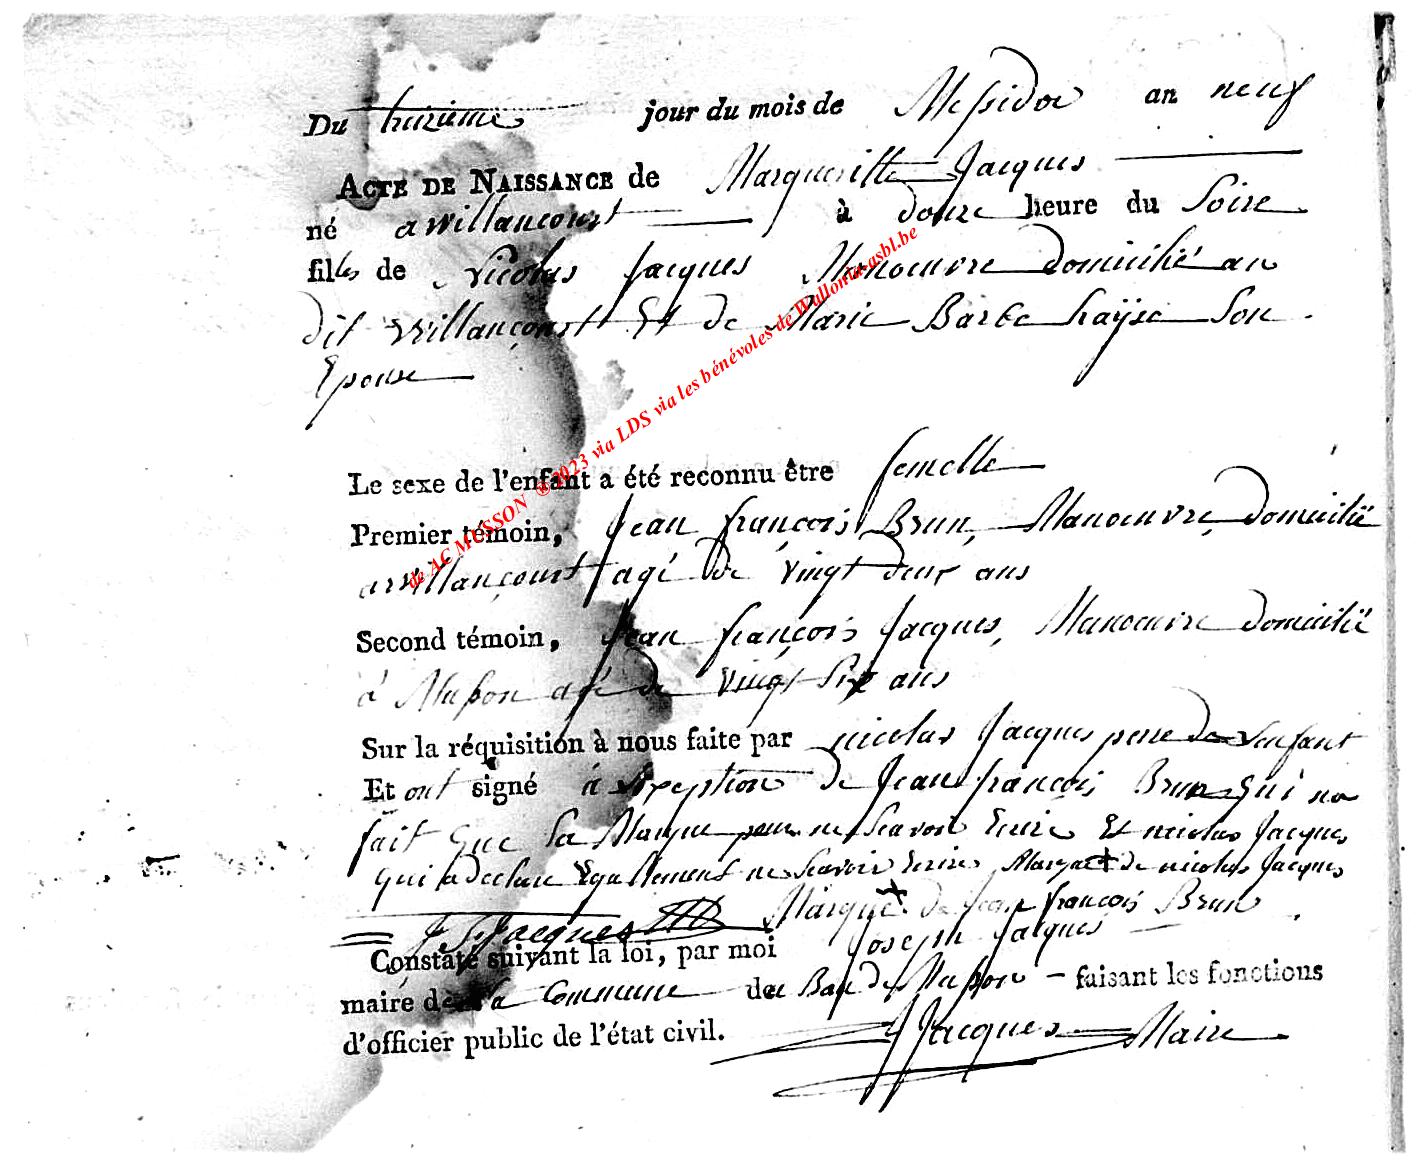 Du treizieme jour du mois de Messidor an neuf
ACTE DE NAISSANCE de Margueritte Jacques
né a Willancourt à douze heure du Soire
filles de Nicolas Jacques Manoeuvre domicilié au
dit Willançourt Et de Marie Barbe haÿse Son
Epouse
Le sexe de l'enfant a été reconnu être femelle
Premier témoin, Jean françois Brun, Manoeuvre, domicilié
a Willançourt agé de vingt deux ans
Second témoin, Jean françois Jacques, Manoeuvre domicilié
à Musson agé de vingt Six ans
Sur la réquisition à nous faite par nicolas Jacques pere de l'enfant
Et ont signé à Exception de Jean françois Brun qui na
fait que Sa Marque pour ne Scavoir Ecrire Et nicolas Jacques
qui a declare Egallement ne Scavoir Ecrire Marque + de nicolas Jacques
Marque + de Jean françois Brun
J F Jacques
Constaté suivant la loi, par moi Joseph Jacques
maire de la Commune du Ban de Musson - faisant les fonctions
d'officier public de l'état civil. J Jacques Maire
de AC MUSSON ® 2023 via LDS via les bénévoles de Wallonia-asbl.be